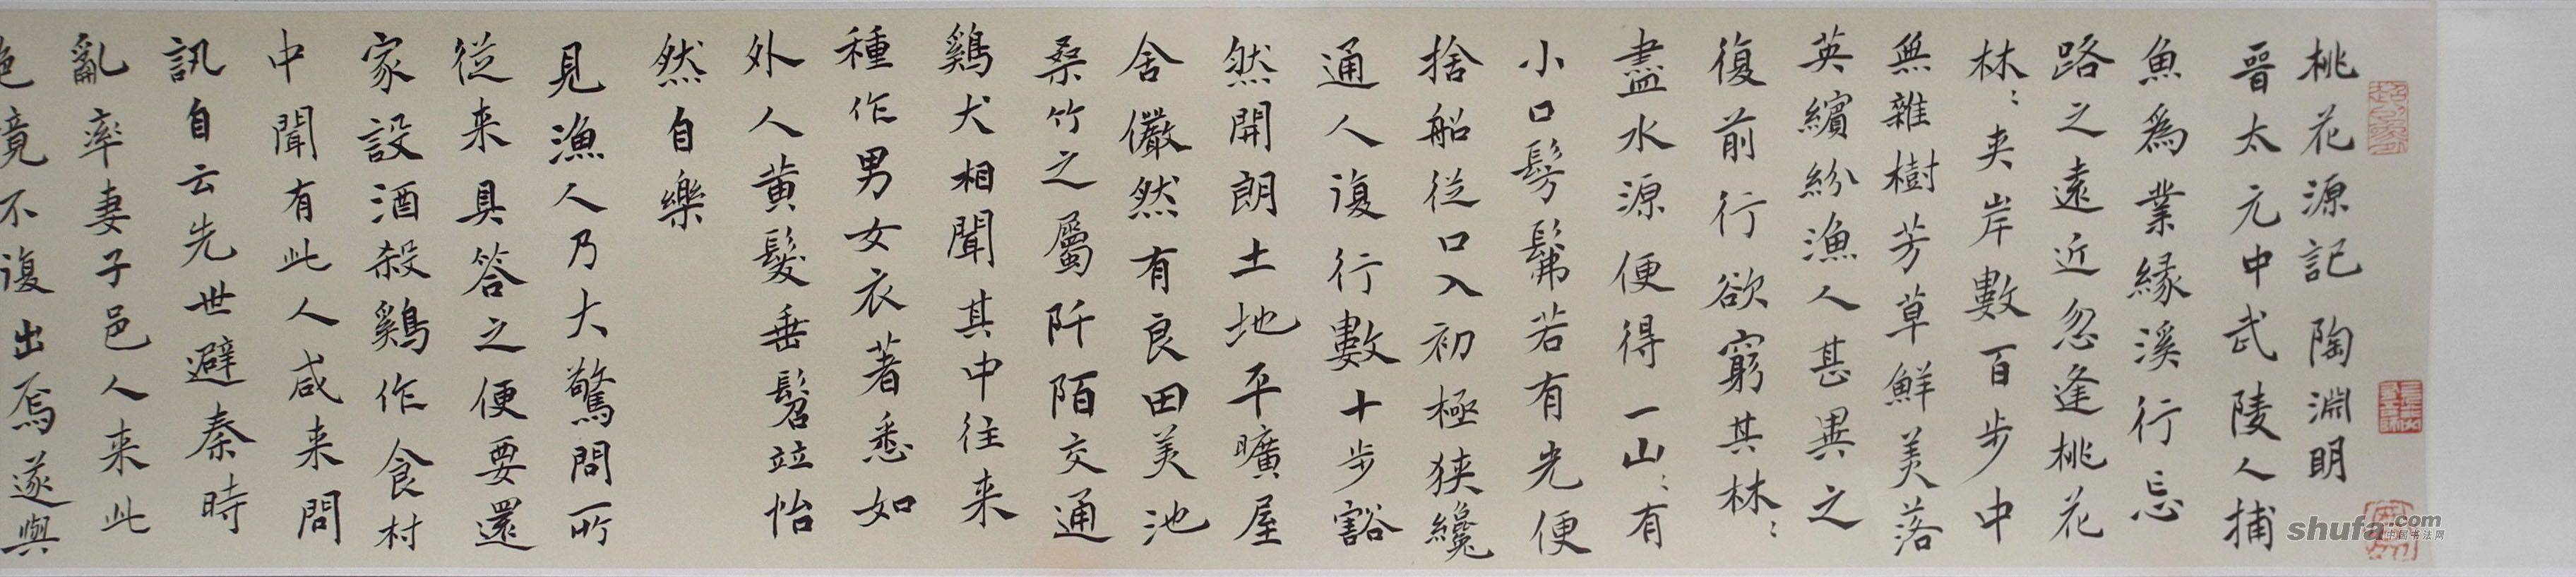 桃花源記 陶淵明
晉太元中武陵人捕
魚為業緣溪行忘
路之遠近忽逢桃花
林:夹岸數百步中
無雜樹芳草鮮美落
英繽紛漁人甚異之
復前行欲窮其林:
盡水源便得一山:有
小口髣髴若有光便
捨船從口入初極狹纔
通人復行數十步豁
然開朗土地平曠屋
舍儼然有良田美池
桑竹之屬阡陌交通
鷄犬相聞其中往来
種作男女衣著悉如
外人黄髮垂髫並怡
然自樂
見漁人乃大驚問所
從来具答之便要還
家設酒殺鷄作食村
中聞有此人咸来問
訊自云先世避秦時
亂率妻子邑人来此
絶境不復出焉遂與
shufa.com
中国书法网